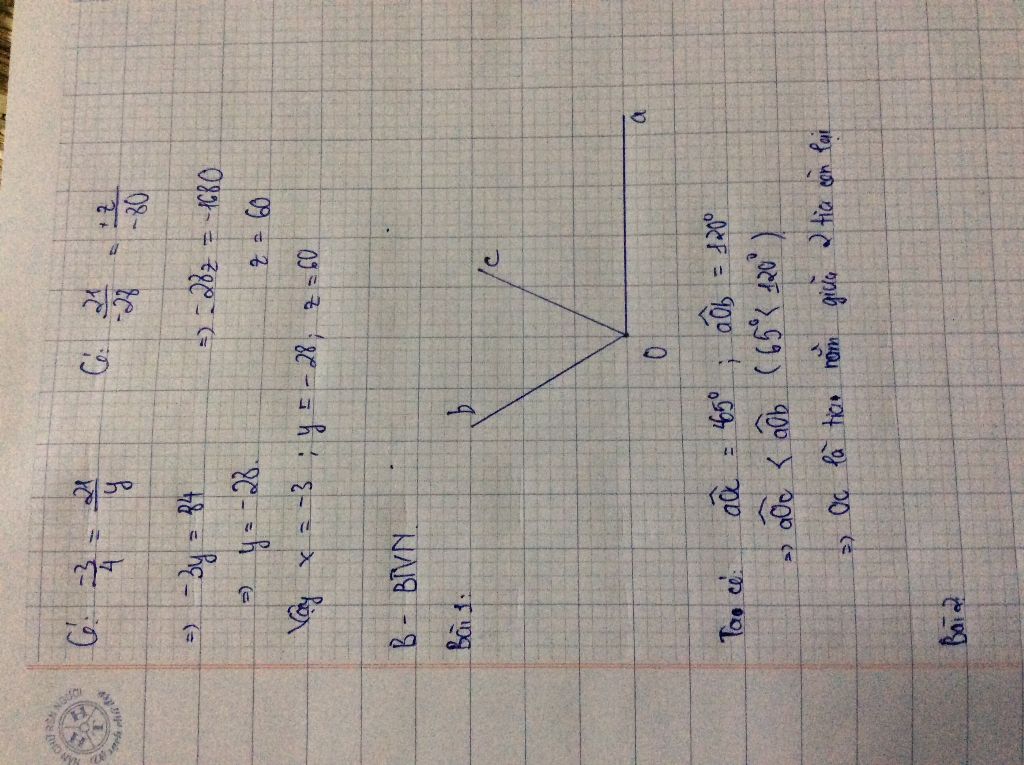 Có: -3/4 = 21/y
=) -3y = 84
=) y = -28.
Có: 21/-28 = +z/-80
=) -28z = -1680
z = 60
Vậy x = -3 ; y = -28 ; z = 60
B - BTVN
Bài 1:
b
c
O
a
Ta có: aOc = 65° ; aOb = 120°
=) aOc < aOb (65° < 120°)
=) Oc là tia nằm giữa 2 tia còn lại
Bài 2